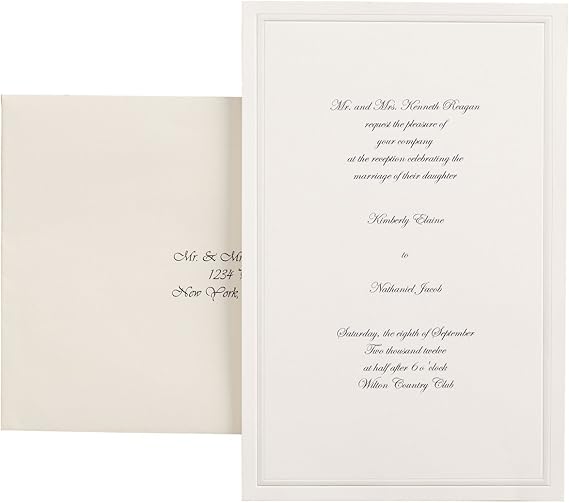 Mr. and Mrs. Kenneth Reagan
request the pleasure of
your company
at the reception celebrating the
marriage of their daughter
Kimberly Elaine
to
Nathaniel Jacob
Saturday, the eighth of September
Two thousand twelve
at half after 6 o'clock
Wilton Country Club
Mr. & Mr
1234
New York,